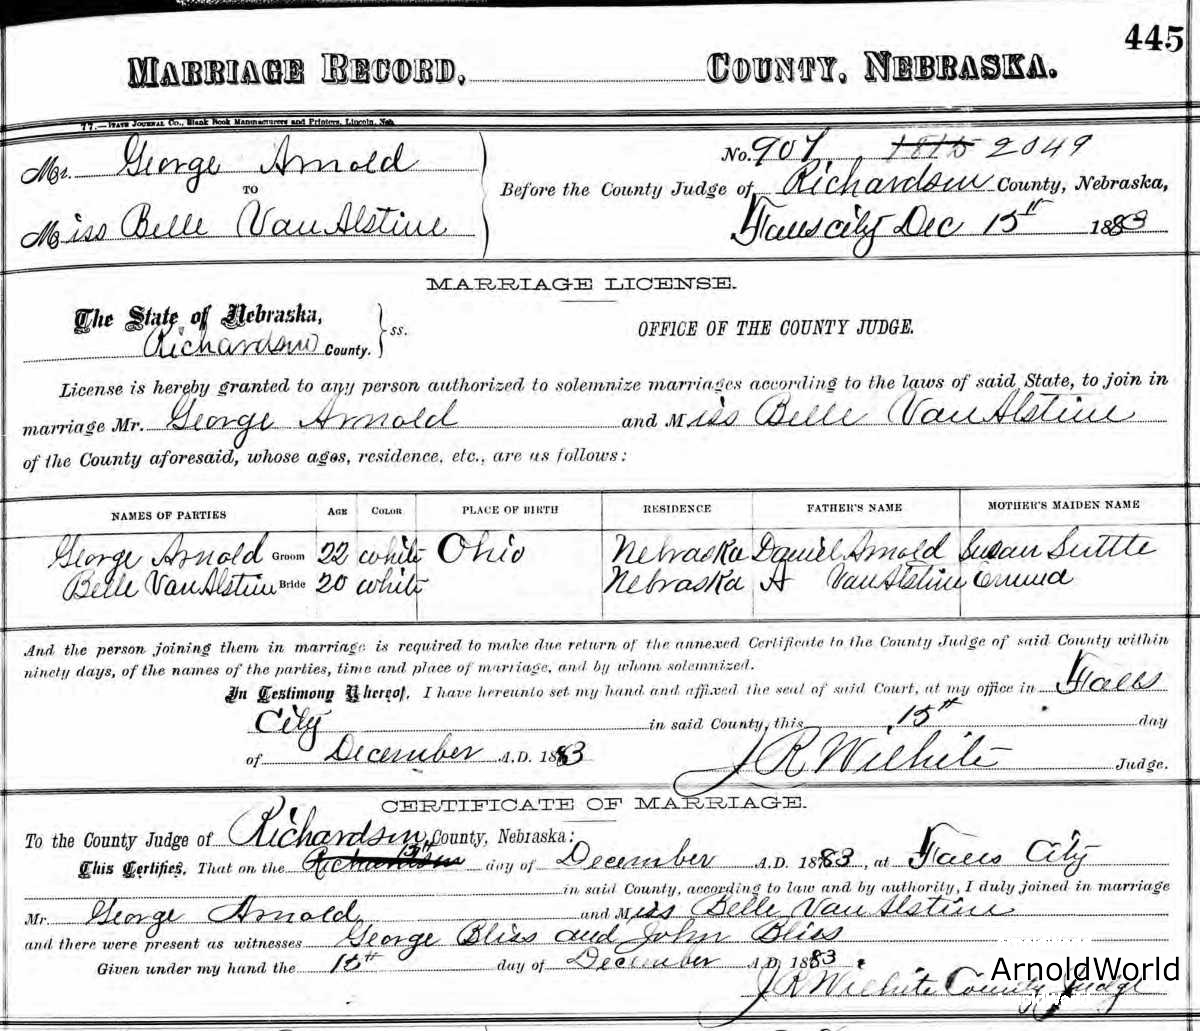 445
MARRIAGE RECORD, COUNTY, NEBRASKA.
77.—STATE JOURNAL CO., Blank Book Manufacturers and Printers, Lincoln, Neb.
Mr. George Arnold
TO
Miss Belle VanAlstine
No. 907. 1815 2049
Before the County Judge of Richardson County, Nebraska,
Falls City Dec 15th 1883
MARRIAGE LICENSE.
The State of Nebraska,
Richardson County. } ss.
OFFICE OF THE COUNTY JUDGE.
License is hereby granted to any person authorized to solemnize marriages according to the laws of said State, to join in
marriage Mr. George Arnold and Miss Belle VanAlstine
of the County aforesaid, whose ages, residence, etc., are as follows:
NAMES OF PARTIES AGE COLOR PLACE OF BIRTH RESIDENCE FATHER'S NAME MOTHER'S MAIDEN NAME
George Arnold Groom 22 white Ohio Nebraska Daniel Arnold Susan Suttle
Belle VanAlstine Bride 20 white Nebraska A VanAlstine Emma
And the person joining them in marriage is required to make due return of the annexed Certificate to the County Judge of said County within
ninety days, of the names of the parties, time and place of marriage, and by whom solemnized.
In Testimony Whereof, I have hereunto set my hand and affixed the seal of said Court, at my office in Falls
City in said County, this 15th day
of December A.D. 1883
J R Wilhite Judge.
CERTIFICATE OF MARRIAGE.
To the County Judge of Richardson County, Nebraska:
This Certifies, That on the Richardson 15th day of December A.D. 1883, at Falls City
in said County, according to law and by authority, I duly joined in marriage
Mr. George Arnold and Miss Belle VanAlstine
and there were present as witnesses George Bliss and John Bliss
Given under my hand the 15th day of December A.D. 1883.
J R Wilhite County Judge
ArnoldWorld